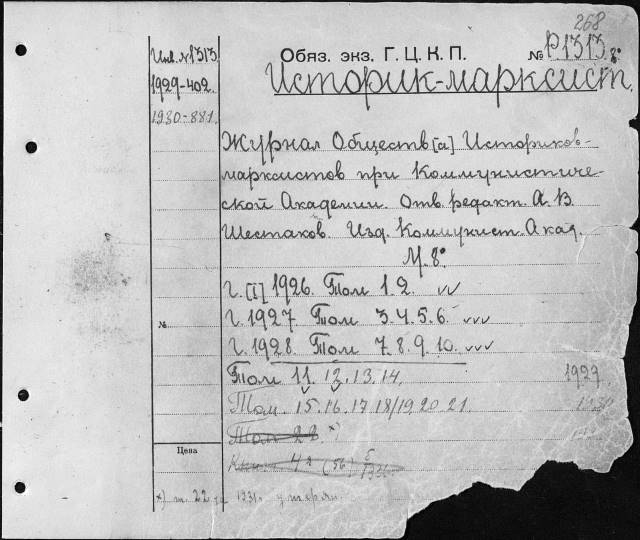 268
Инв. №1313
Обяз. экз. Г. Ц. К. П.
№ Р1313 8°
1929-402.
Историк-марксист.
1930-881.
Журнал Обществ[а] Историков-
марксистов при Коммунистиче-
ской Академии. Отв. редакт. А. В.
Шестаков. Изд. Коммунист. Акад.
М. 8°
г. [I] 1926. Том 1. 2.
г. 1927. Том 3. 4. 5. 6.
№
г. 1928. Том 7. 8. 9. 10.
Том 11. 12. 13. 14. 1929
Том. 15. 16. 17 18/19. 20. 21.
Том 22. *)
Цена
Кн. 4 (56)
*) т. 22 1931 утерян.